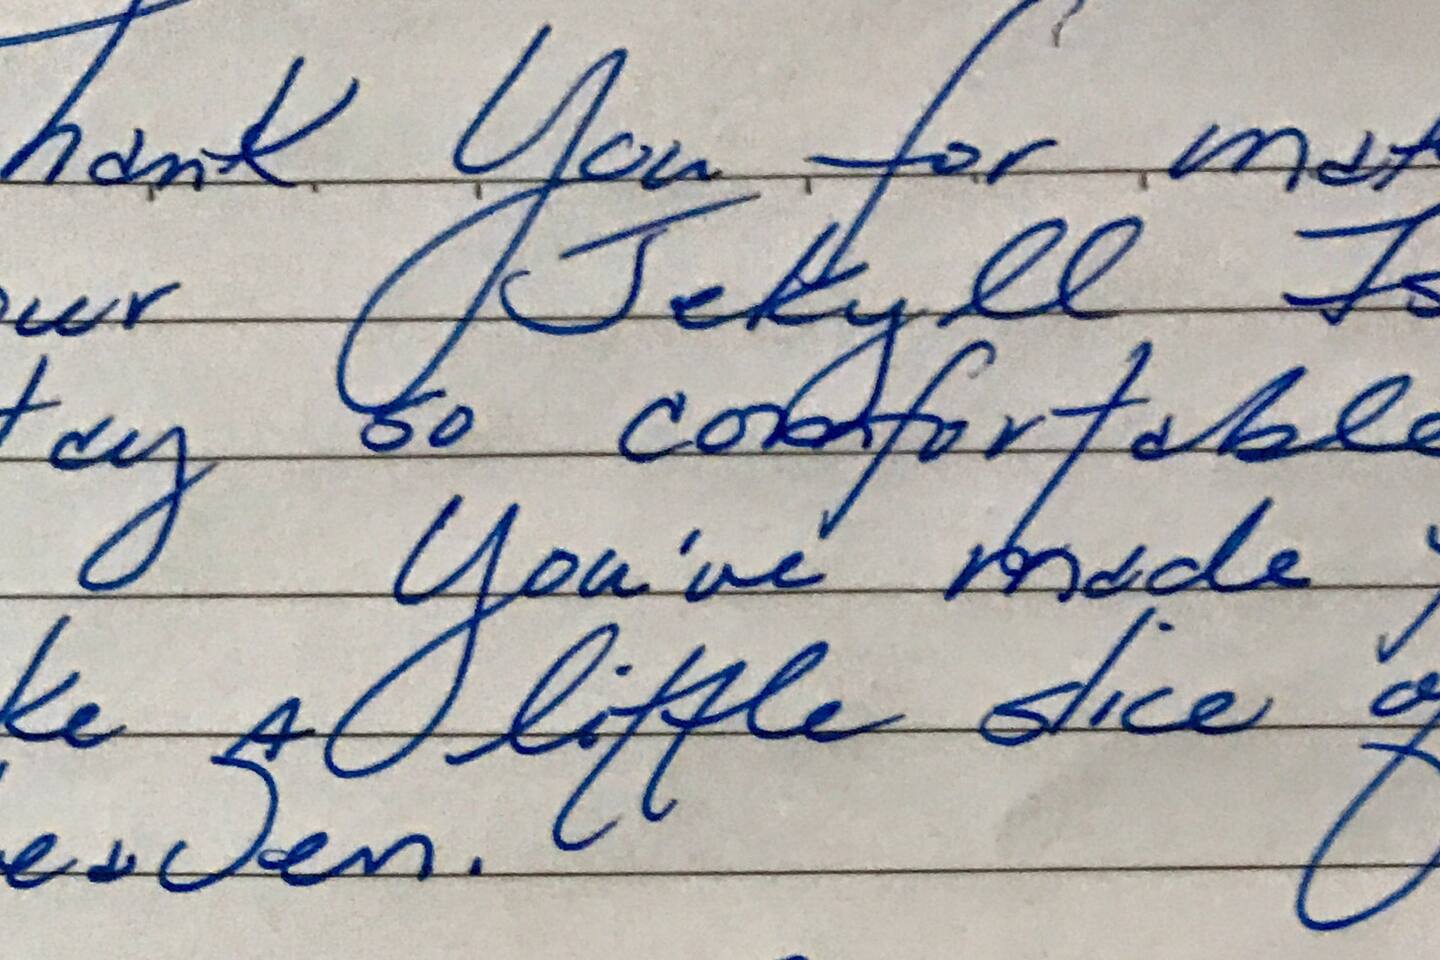 Thank You for mak
our Jekyll Is
tay so comfortable
You've made y
ke A little slice of
eaven.